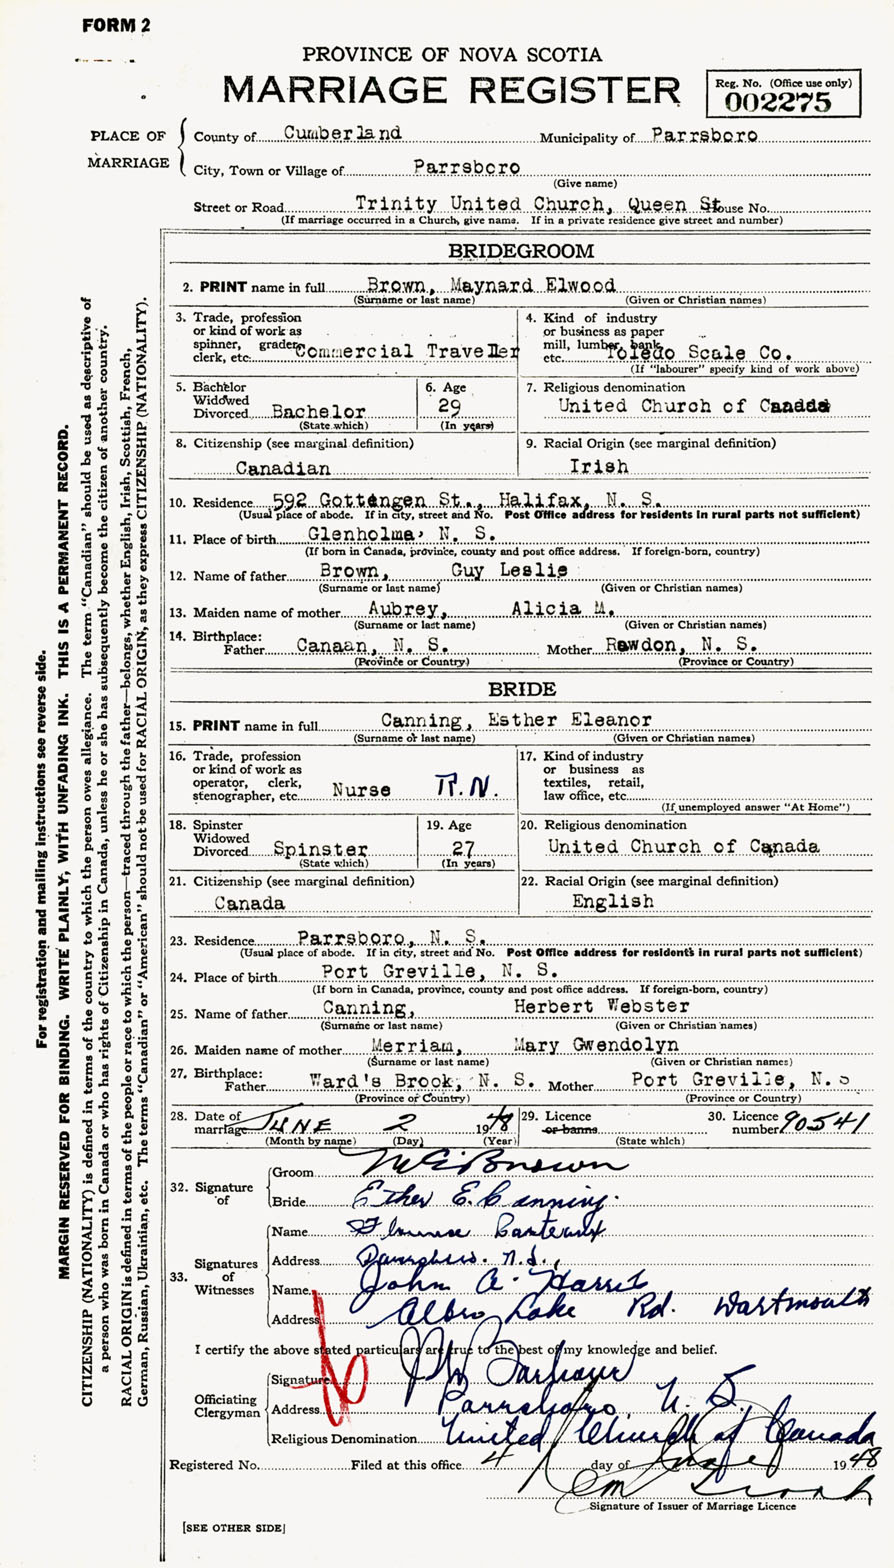 FORM 2
PROVINCE OF NOVA SCOTIA
MARRIAGE REGISTER
Reg. No. (Office use only)
002275
PLACE OF MARRIAGE
County of Cumberland Municipality of Parrsboro
City, Town or Village of Parrsboro
(Give name)
Street or Road Trinity United Church, Queen St House No.
(If marriage occurred in a Church, give name. If in a private residence give street and number)
BRIDEGROOM
2. PRINT name in full Brown, Maynard Elwood
(Surname or last name) (Given or Christian names)
3. Trade, profession or kind of work as spinner, grader, clerk, etc. Commercial Traveller
4. Kind of industry or business as paper mill, lumber, bank, etc. Toledo Scale Co.
(If "labourer" specify kind of work above)
5. Bachelor Widowed Divorced Bachelor
(State which)
6. Age 29
(In years)
7. Religious denomination
United Church of Canada
8. Citizenship (see marginal definition)
Canadian
9. Racial Origin (see marginal definition)
Irish
10. Residence 592 Gottengen St., Halifax, N. S.
(Usual place of abode. If in city, street and No. Post Office address for residents in rural parts not sufficient)
11. Place of birth Glenholma, N. S.
(If born in Canada, province, county and post office address. If foreign-born, country)
12. Name of father Brown, Guy Leslie
(Surname or last name) (Given or Christian names)
13. Maiden name of mother Aubrey, Alicia M.
(Surname or last name) (Given or Christian names)
14. Birthplace:
Father Canaan, N. S. Mother Rawdon, N. S.
(Province or Country) (Province or Country)
BRIDE
15. PRINT name in full Canning, Esther Eleanor
(Surname or last name) (Given or Christian names)
16. Trade, profession or kind of work as operator, clerk, stenographer, etc. Nurse R.N.
17. Kind of industry or business as textiles, retail, law office, etc.
(If unemployed answer "At Home")
18. Spinster Widowed Divorced Spinster
(State which)
19. Age 27
(In years)
20. Religious denomination
United Church of Canada
21. Citizenship (see marginal definition)
Canada
22. Racial Origin (see marginal definition)
English
23. Residence Parrsboro, N. S.
(Usual place of abode. If in city, street and No. Post Office address for residents in rural parts not sufficient)
24. Place of birth Port Greville, N. S.
(If born in Canada, province, county and post office address. If foreign-born, country)
25. Name of father Canning, Herbert Webster
(Surname or last name) (Given or Christian names)
26. Maiden name of mother Merriam, Mary Gwendolyn
(Surname or last name) (Given or Christian names)
27. Birthplace:
Father Ward's Brook, N. S. Mother Port Greville, N. S
(Province or Country) (Province or Country)
28. Date of marriage JUNE 2 1948
(Month by name) (Day) (Year)
29. Licence or banns
(State which)
30. Licence number 90541
32. Signature of
Groom M E Brown
Bride Esther E. Canning.
33. Signatures of Witnesses
Name
Address Parrsboro. N.S.,
Name John A. Harris
Address Albro Lake Rd. Dartmouth
I certify the above stated particulars are true to the best of my knowledge and belief.
Officiating Clergyman
Signature
Address Parrsboro, N. S.,
Religious Denomination United Church of Canada
Registered No. Filed at this office 4 day of June 1948
Signature of Issuer of Marriage Licence
[SEE OTHER SIDE]
For registration and mailing instructions see reverse side.
MARGIN RESERVED FOR BINDING. WRITE PLAINLY, WITH UNFADING INK. THIS IS A PERMANENT RECORD.
CITIZENSHIP (NATIONALITY) is defined in terms of the country to which the person owes allegiance. The term "Canadian" should be used as descriptive of
a person who was born in Canada or who has rights of Citizenship in Canada, unless he or she has subsequently become the citizen of another country.
RACIAL ORIGIN is defined in terms of the people or race to which the person—traced through the father—belongs, whether English, Irish, Scottish, French,
German, Russian, Ukrainian, etc. The terms "Canadian" or "American" should not be used for RACIAL ORIGIN, as they express CITIZENSHIP (NATIONALITY).